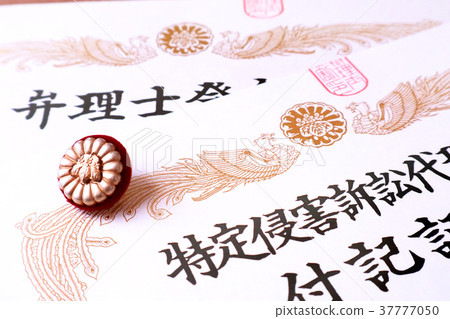 弁理士登
特定侵害訴訟代理
付記証
37777050